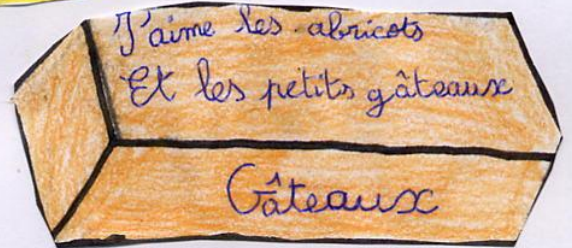 J'aime les abricots
Et les petits gâteaux
Gâteaux